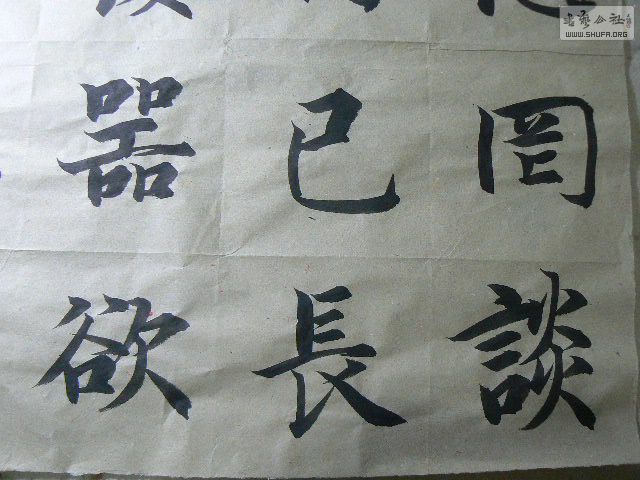 罔談
已長
噐欲
書藝公社
WWW.SHUFA.ORG